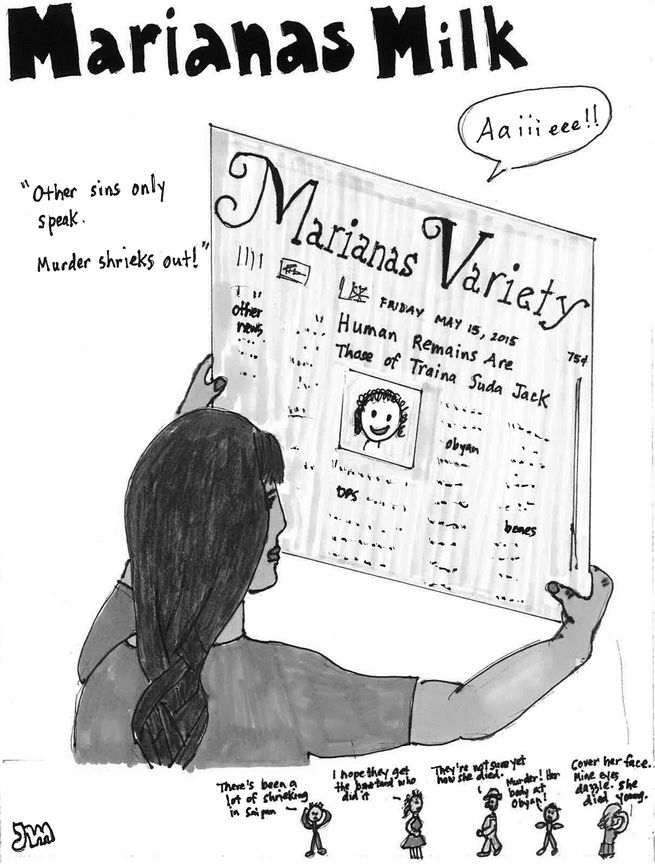 Marianas Milk
Aaiiieee!!
"Other sins only
speak.
Murder shrieks out!"
Marianas Variety
FRIDAY MAY 15, 2015
75¢
Human Remains Are
Those of Traina Suda Jack
other
news
obyan
DPS
bones
There's been a
lot of shrieking
in Saipan
I hope they get
the bastard who
did it
They're not sure yet
how she died.
Murder! Her
body at
Obyan!
Cover her face.
Mine eyes
dazzle. She
died young.
JM